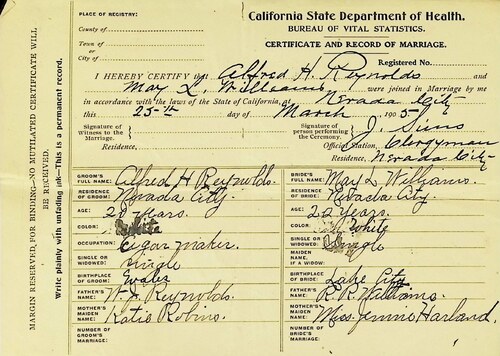 MARGIN RESERVED, FOR BINDING—NO MUTILATED CERTIFICATE WILL
BE RECEIVED.
Write plainly with unfading ink—This is a permanent record.
PLACE OF REGISTRY:
County of
Town of
or
City of
California State Department of Health.
BUREAU OF VITAL STATISTICS.
CERTIFICATE AND RECORD OF MARRIAGE.
Registered No.
I HEREBY CERTIFY that Alfred H. Reynolds and
May L. Williams were joined in Marriage by me
in accordance with the laws of the State of California, at Nevada City
this 25th day of March 1905
Signature of Witness to the Marriage
Residence,
Signature of person performing the Ceremony. J. Sims
Official Station, Clergyman
Residence, Nevada City
GROOM'S FULL NAME: Alfred H Reynolds.
RESIDENCE OF GROOM: Nevada City
AGE: 20 years.
COLOR: White
OCCUPATION: Cigar maker
SINGLE OR WIDOWED: Single
BIRTHPLACE OF GROOM:
FATHER'S NAME: W. J. Reynolds.
MOTHER'S MAIDEN NAME: Katie Robins.
NUMBER OF GROOM'S MARRIAGE:
BRIDE'S FULL NAME: May L Williams.
RESIDENCE OF BRIDE: Nevada City.
AGE: 22 years.
COLOR: White
SINGLE OR WIDOWED: Single
MAIDEN NAME, IF A WIDOW:
BIRTHPLACE OF BRIDE: Lake City
FATHER'S NAME: R. R. Williams.
MOTHER'S MAIDEN NAME: Miss Jennie Harland.
NUMBER OF BRIDE'S MARRIAGE: